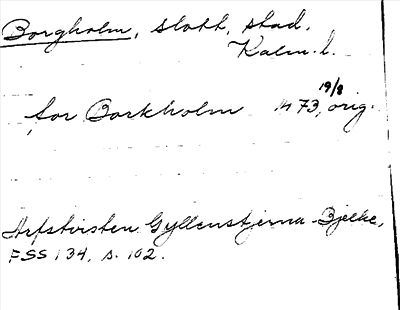 Borgholm, slott, stad.
Kalm. l.
for Borkholm 1473 19/8, orig.
Arfstvisten Gyllenstjerna-Bjelke,
FSS 134, s. 102.